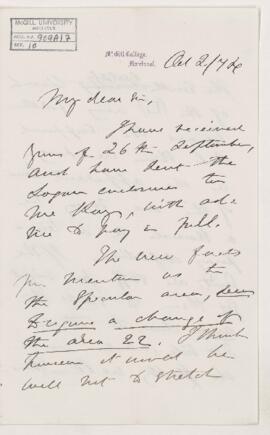 McGILL UNIVERSITY
ARCHIVES
ACC. NO. 909A17
REF. 10
McGill College,
Montreal.
Oct 2/74
My dear Sir,
I have received
yours of 26th September,
and have sent the
Logan enclosures to
Mr Kay, with ad
vice to pay in full.
The new facts
you mention as to
the Specular area, seem
to require a change of
the area 22. I think
however it would be
well not to stretch